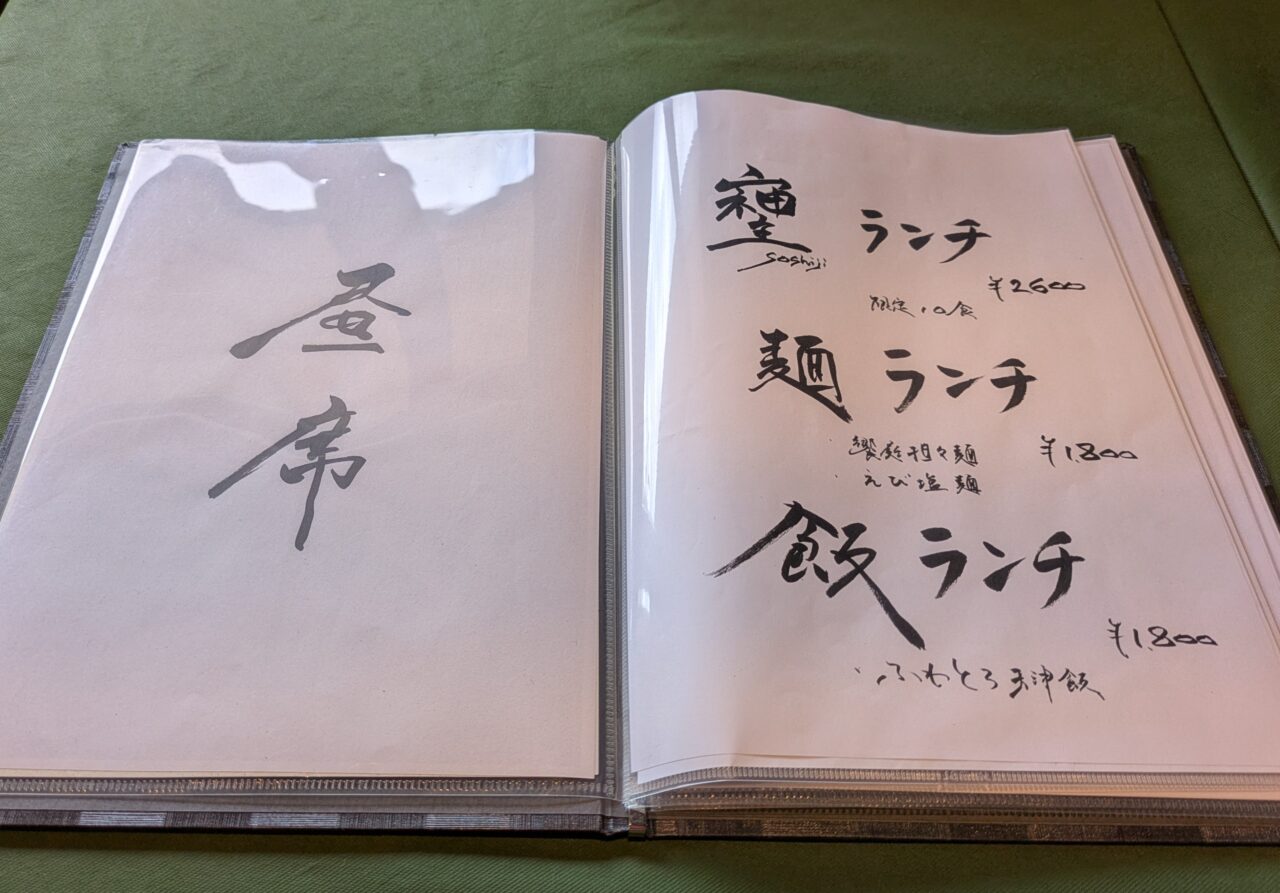 昼
席
ランチ
soshiji
¥2600
限定10食
麺 ランチ
・饗庭担々麺
¥1.800
・えび塩麺
飯 ランチ
¥1.800
・ふわとろ天津飯